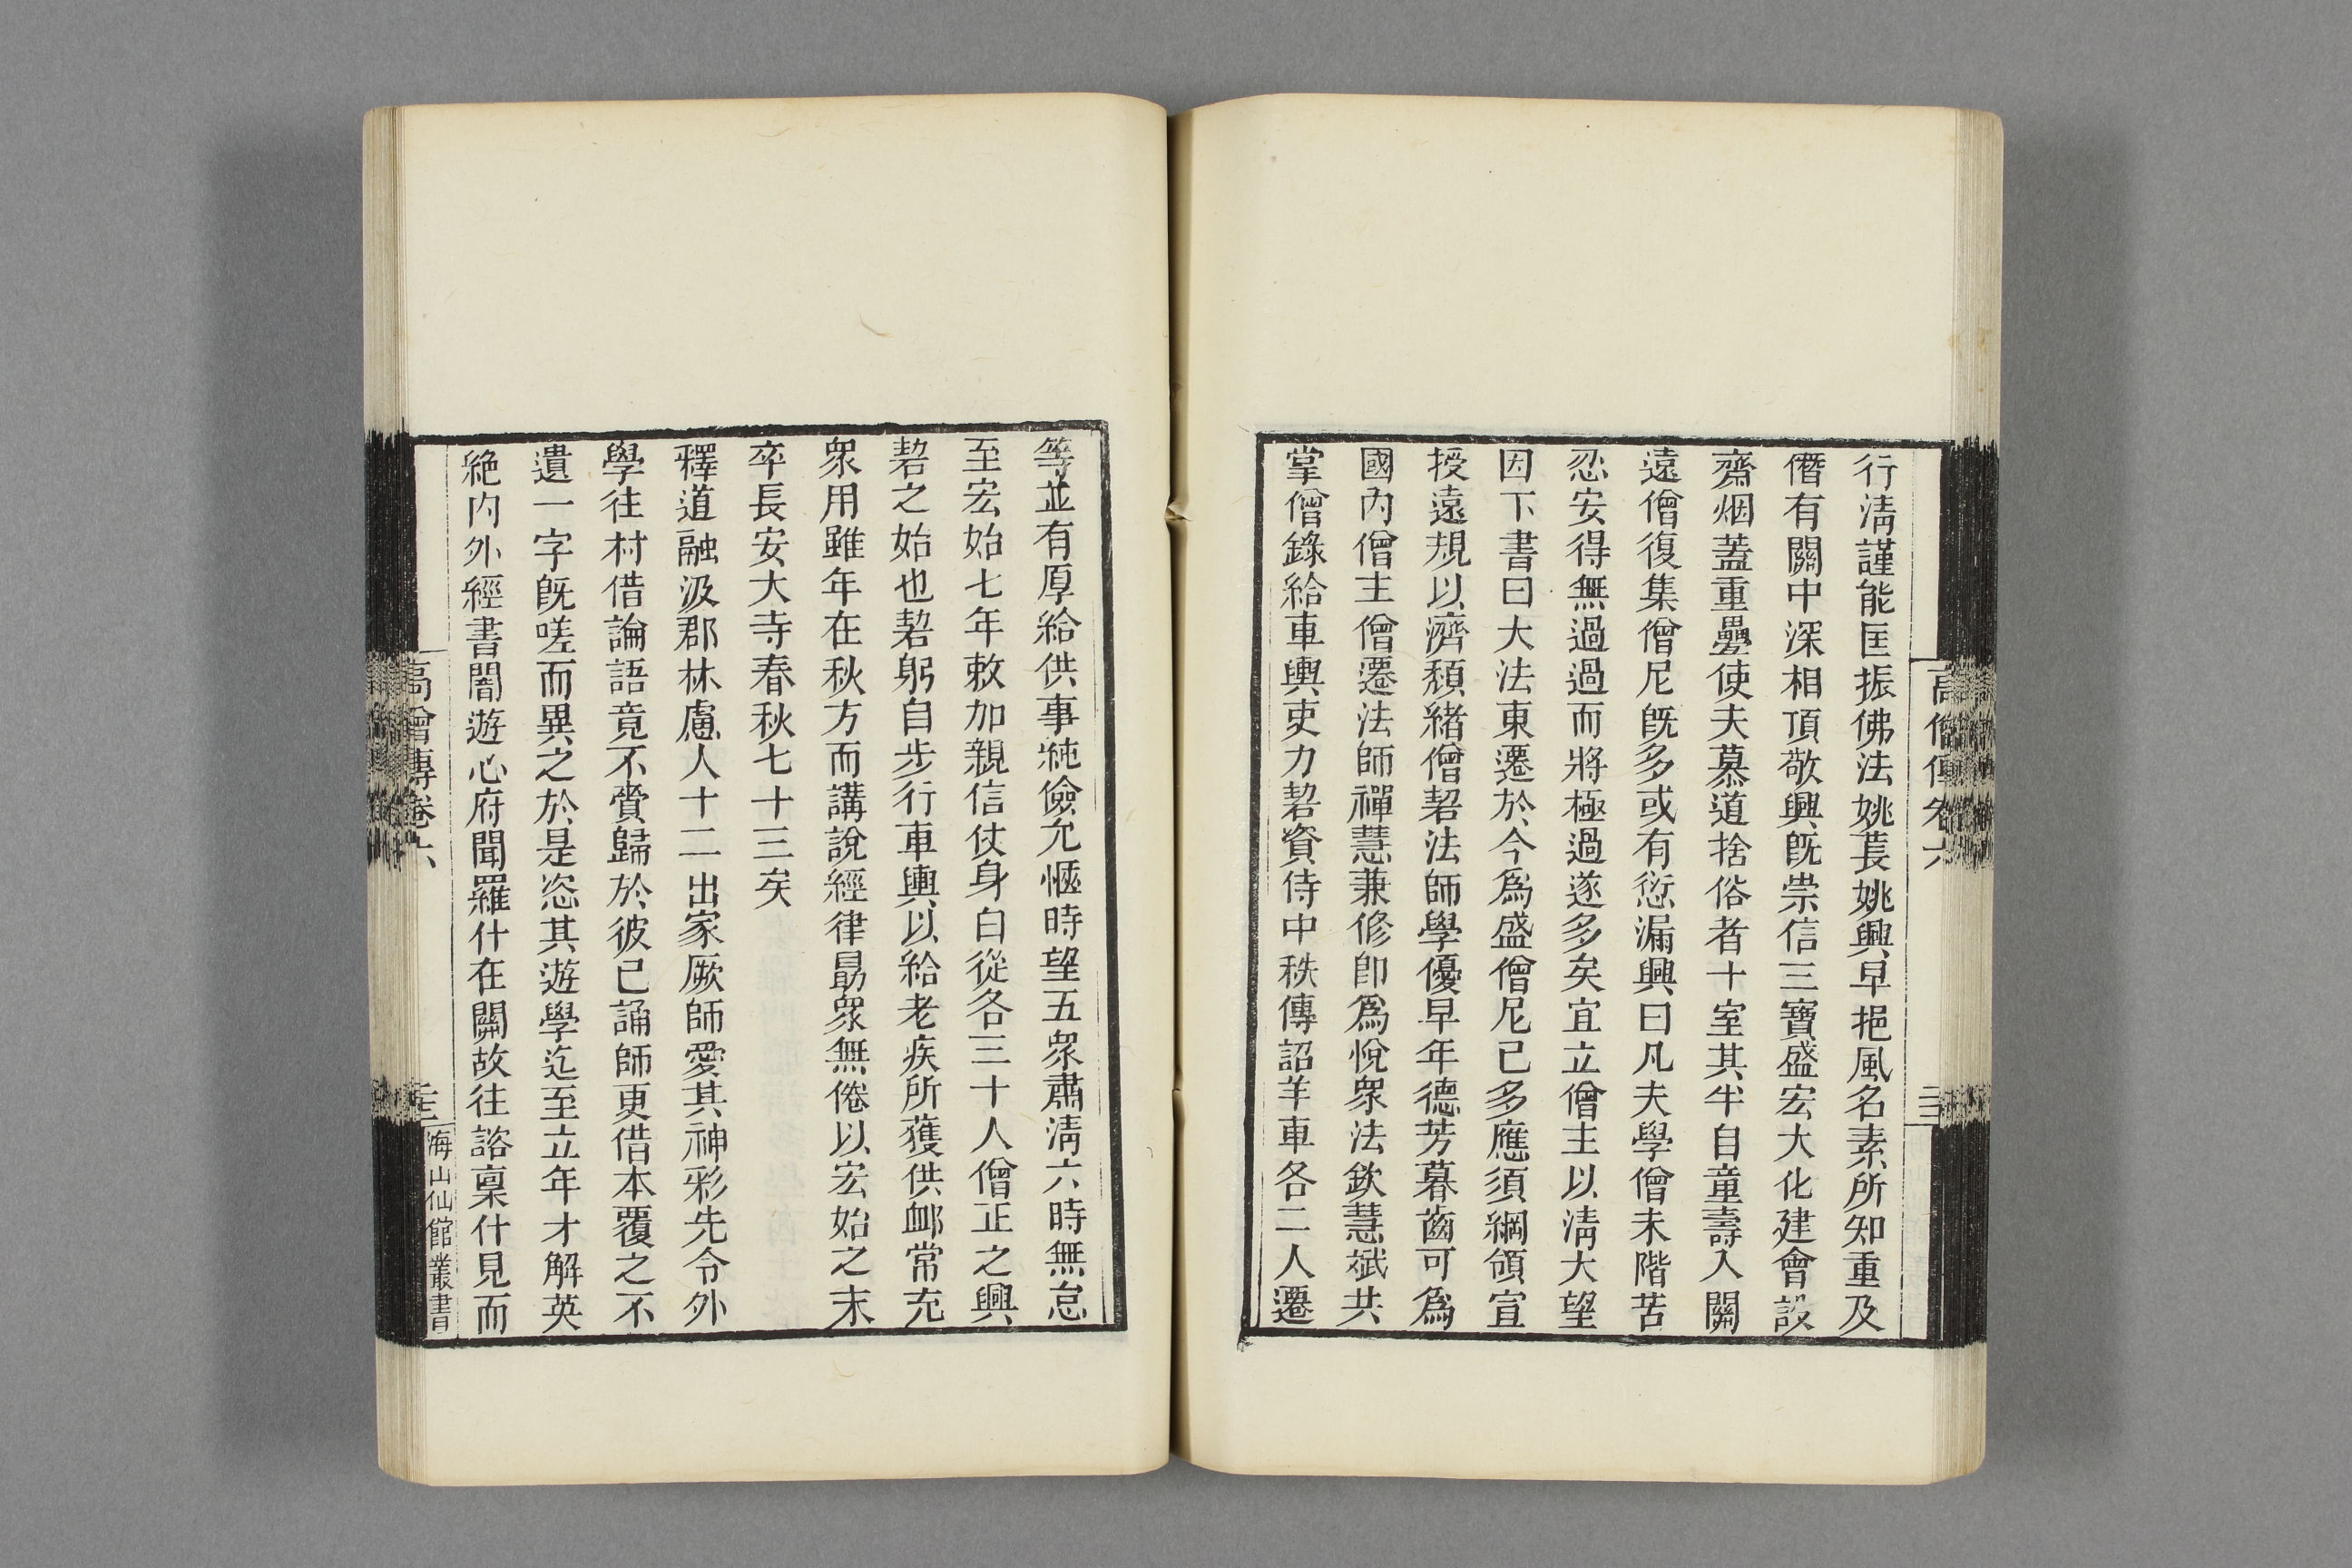 高僧傳卷六
行淸謹能匡振佛法姚萇姚興早挹風名素所知重及
僭有關中深相頂敬興旣崇信三寶盛宏大化建會設
齋烟蓋重疊使夫慕道捨俗者十室其半自童壽入關
遠僧復集僧尼旣多或有愆漏興曰凡夫學僧未階苦
忍安得無過過而將極過遂多矣宜立僧主以淸大望
因下書曰大法東遷於今爲盛僧尼已多應須綱領宣
授遠規以濟頹緖僧䂮法師學優早年德芳暮齒可爲
國內僧主僧遷法師禪慧兼修卽爲悅衆法欽慧斌共
掌僧錄給車輿吏力䂮資侍中秩傳詔羊車各二人遷
等並有厚給供事純儉允愜時望五衆肅淸六時無怠
至宏始七年敕加親信仗身白從各三十人僧正之興
䂮之始也䂮躬自步行車輿以給老疾所獲供䘏常充
衆用雖年在秋方而講說經律勗衆無倦以宏始之末
卒長安大寺春秋七十三矣
釋道融汲郡林慮人十二出家厥師愛其神彩先令外
學往村借論語竟不賫歸於彼已誦師更借本覆之不
遺一字旣嗟而異之於是恣其遊學迄至立年才解英
絶內外經書闇遊心府聞羅什在關故往諮稟什見而
高僧傳卷六
海山仙館叢書